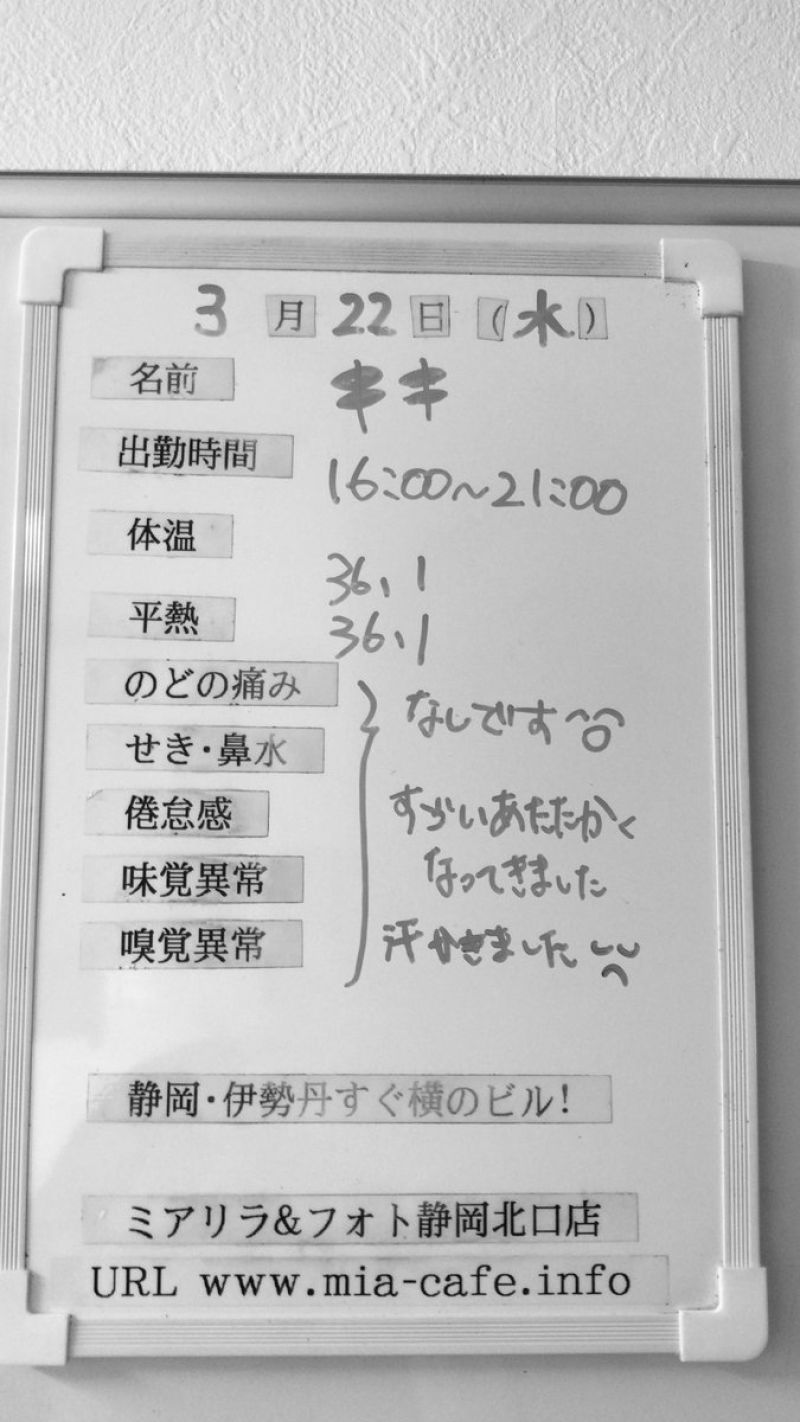 3月22日(水)
名前 キキ
出勤時間 16:00〜21:00
体温 36.1
平熱 36.1
のどの痛み
せき・鼻水
倦怠感
味覚異常
嗅覚異常
なしです
すごいあたたかく
なってきました
汗かきました
静岡・伊勢丹すぐ横のビル!
ミアリラ&フォト静岡北口店
URL www.mia-cafe.info